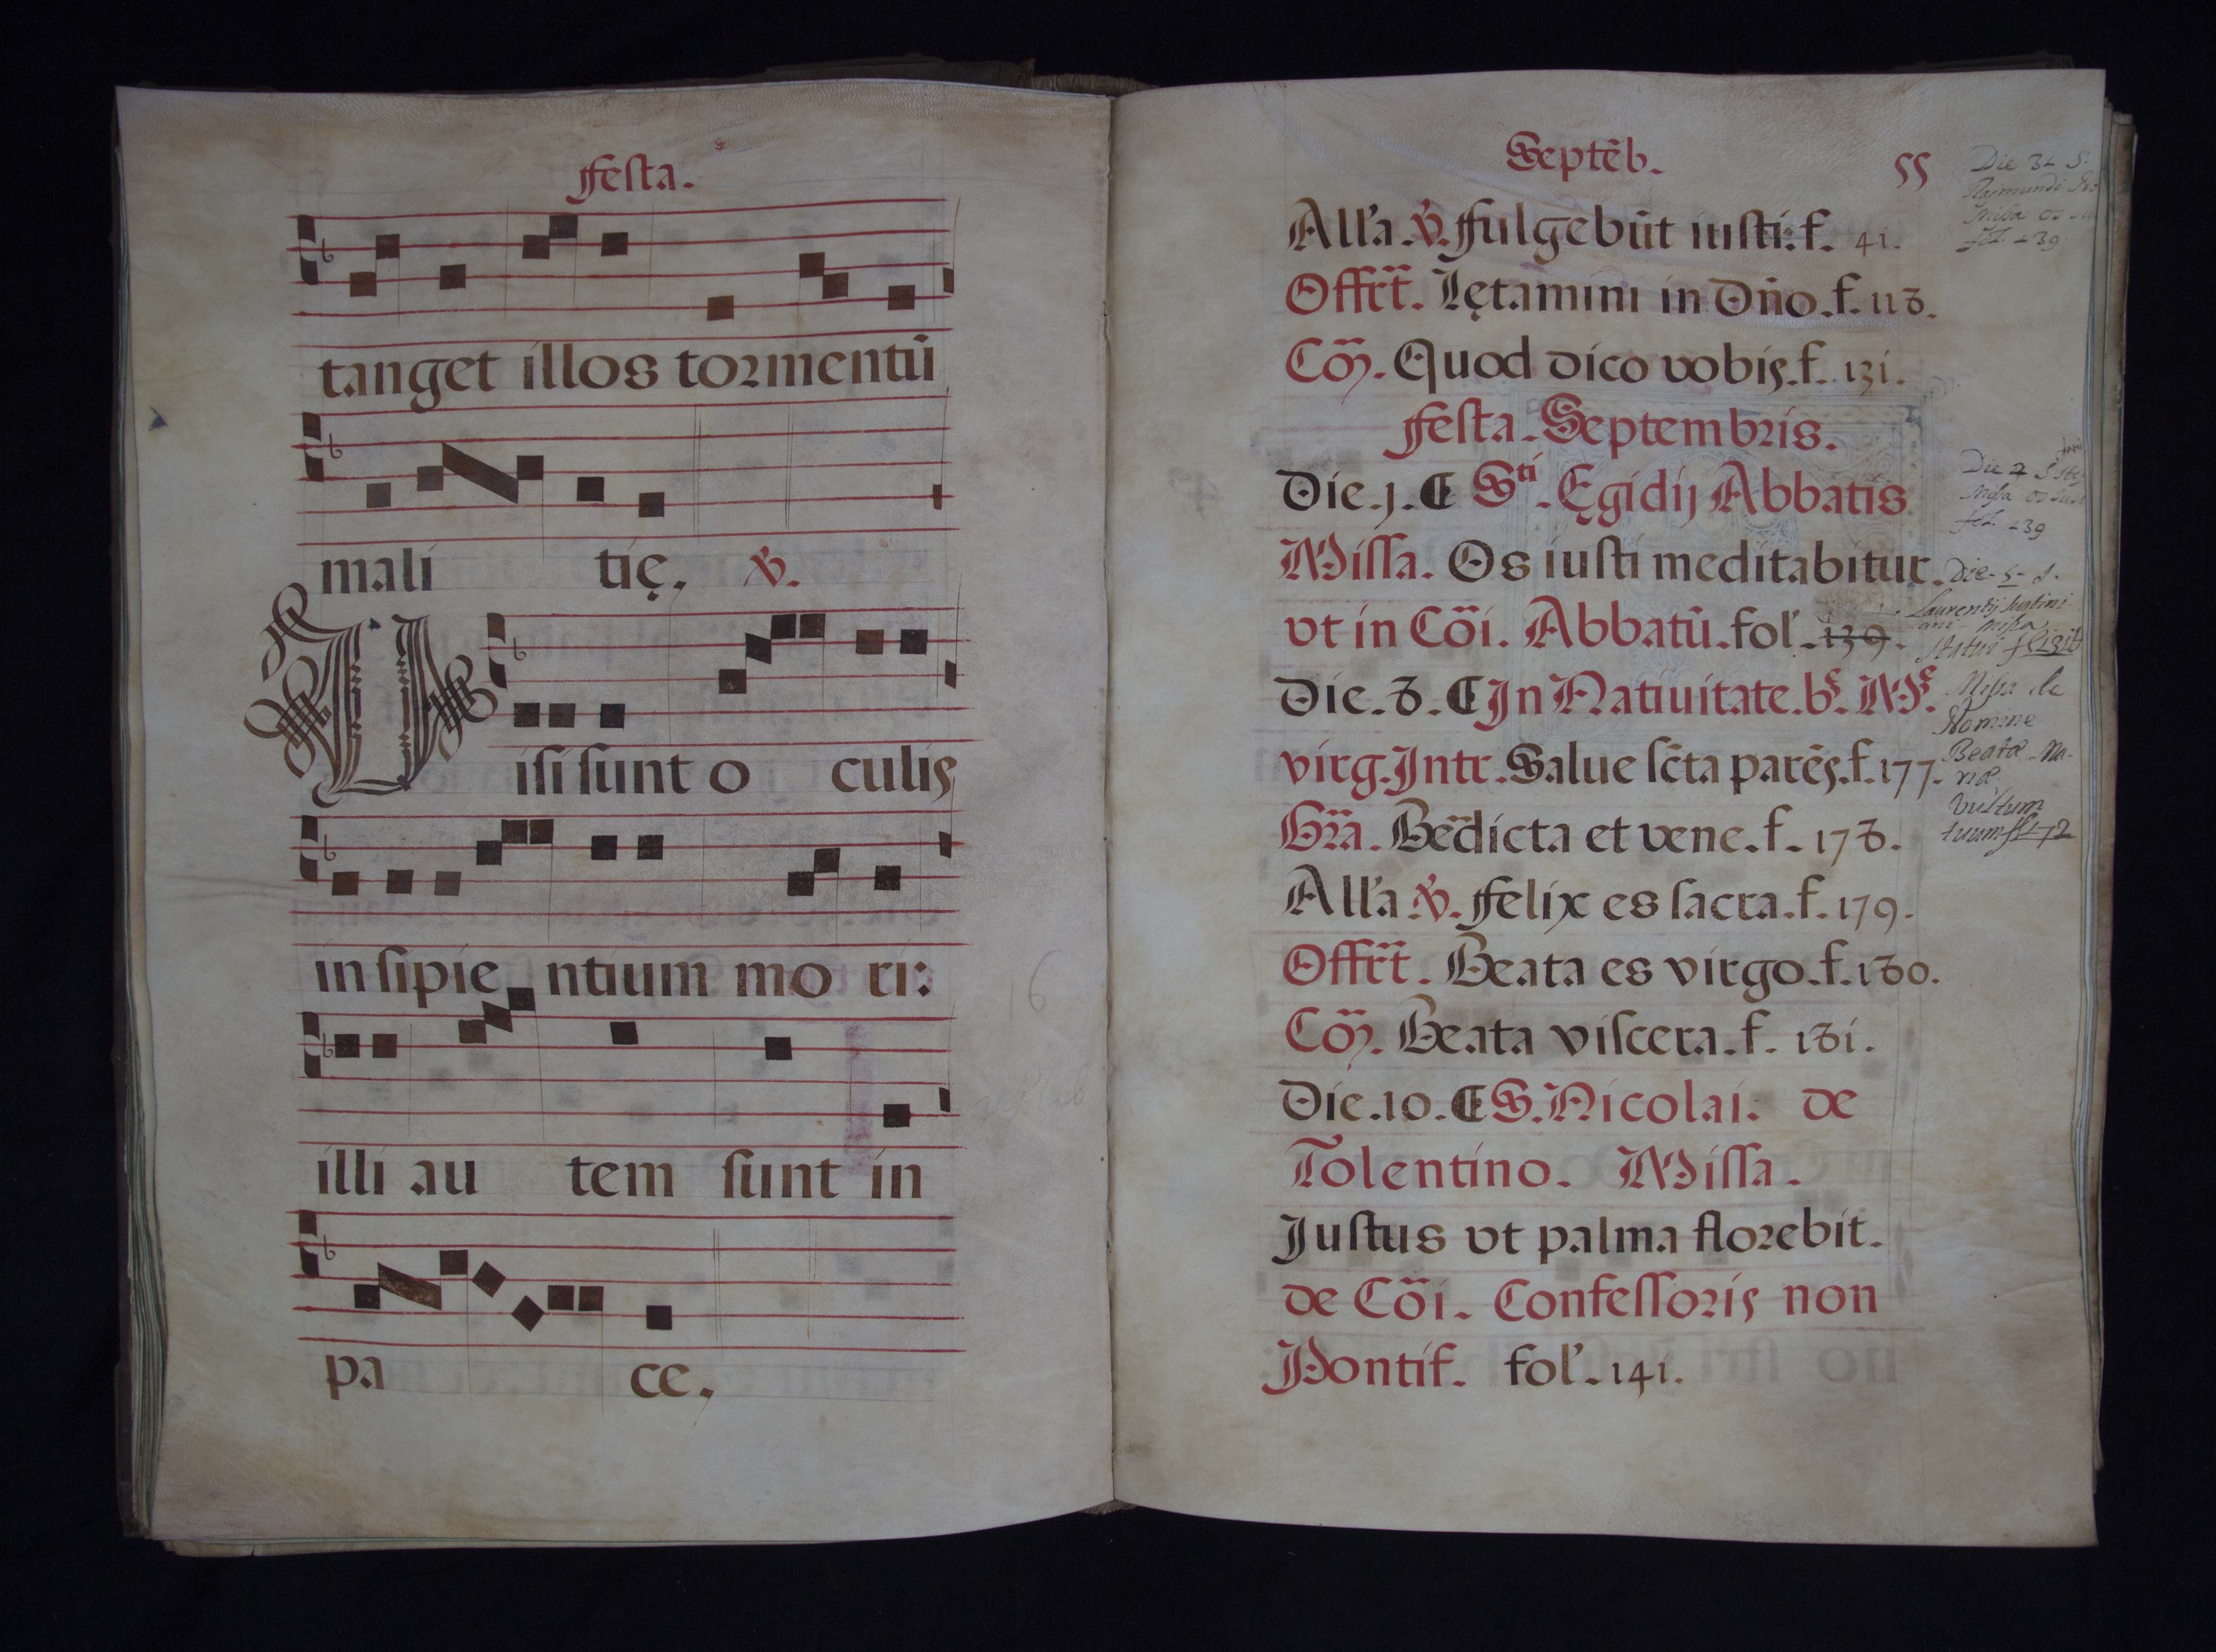 festa.
tanget illos tormentū
mali tię. ℣.
Uisi sunt o culis
in sipie ntium mo ri:
illi au tem sunt in
pa ce.
16
Septēb. 55
All'a. ℣. fulgebūt iusti. f. 41.
Offr̃t. Lętamini in Dño. f. 118.
Cõ. Quod dico vobis. f. 131.
festa. Septembris.
Die. j. ¶ Sti. Ęgidij Abbatis
Missa. Os iusti meditabitur.
vt in Cõi. Abbatū. fol'. 139.
Die. 8. ¶ In Natiuitate. bę. Mę.
virg. Intr. Salue sc̃ta parēs. f. 177.
Gr̃a. Bẽdicta et vene. f. 178.
All'a ℣. felix es sacra. f. 179.
Offr̃t. Beata es virgo. f. 180.
Cõ. Beata viscera. f. 181.
Die. 10. ¶ S. Nicolai. de
Tolentino. Missa.
Justus vt palma florebit.
de Cõi. Confessoris non
Pontif. fol'. 141.
Die 31 S.
Raimundi
Missa os
fol. 139
Die 2 S Ste
Missa os Just
fol. 139
Die. 5. S.
Laurentij Justini
ani missa
Statuit f 131
Missa de
Nomine
Beatæ Ma
riæ
Vultum
tuum fl 172